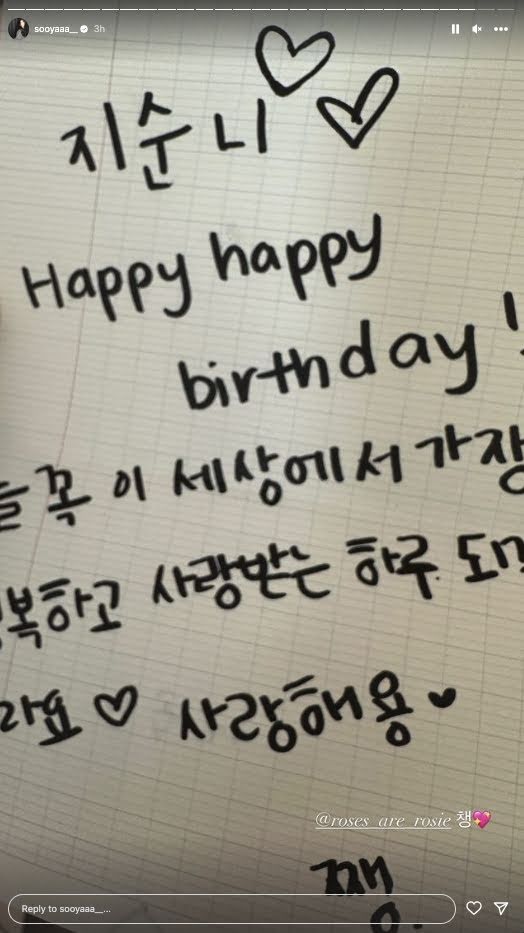 sooyaaa__ 3h
지수니
Happy happy
birthday !
꼭 이 세상에서 가장
사랑받는 하루
사랑해용
@roses_are_rosie 챙
Reply to sooyaaa__...